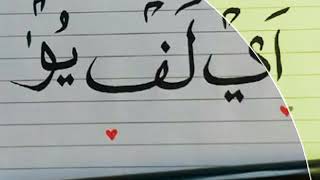 اَيْ لَفْ يُوْ